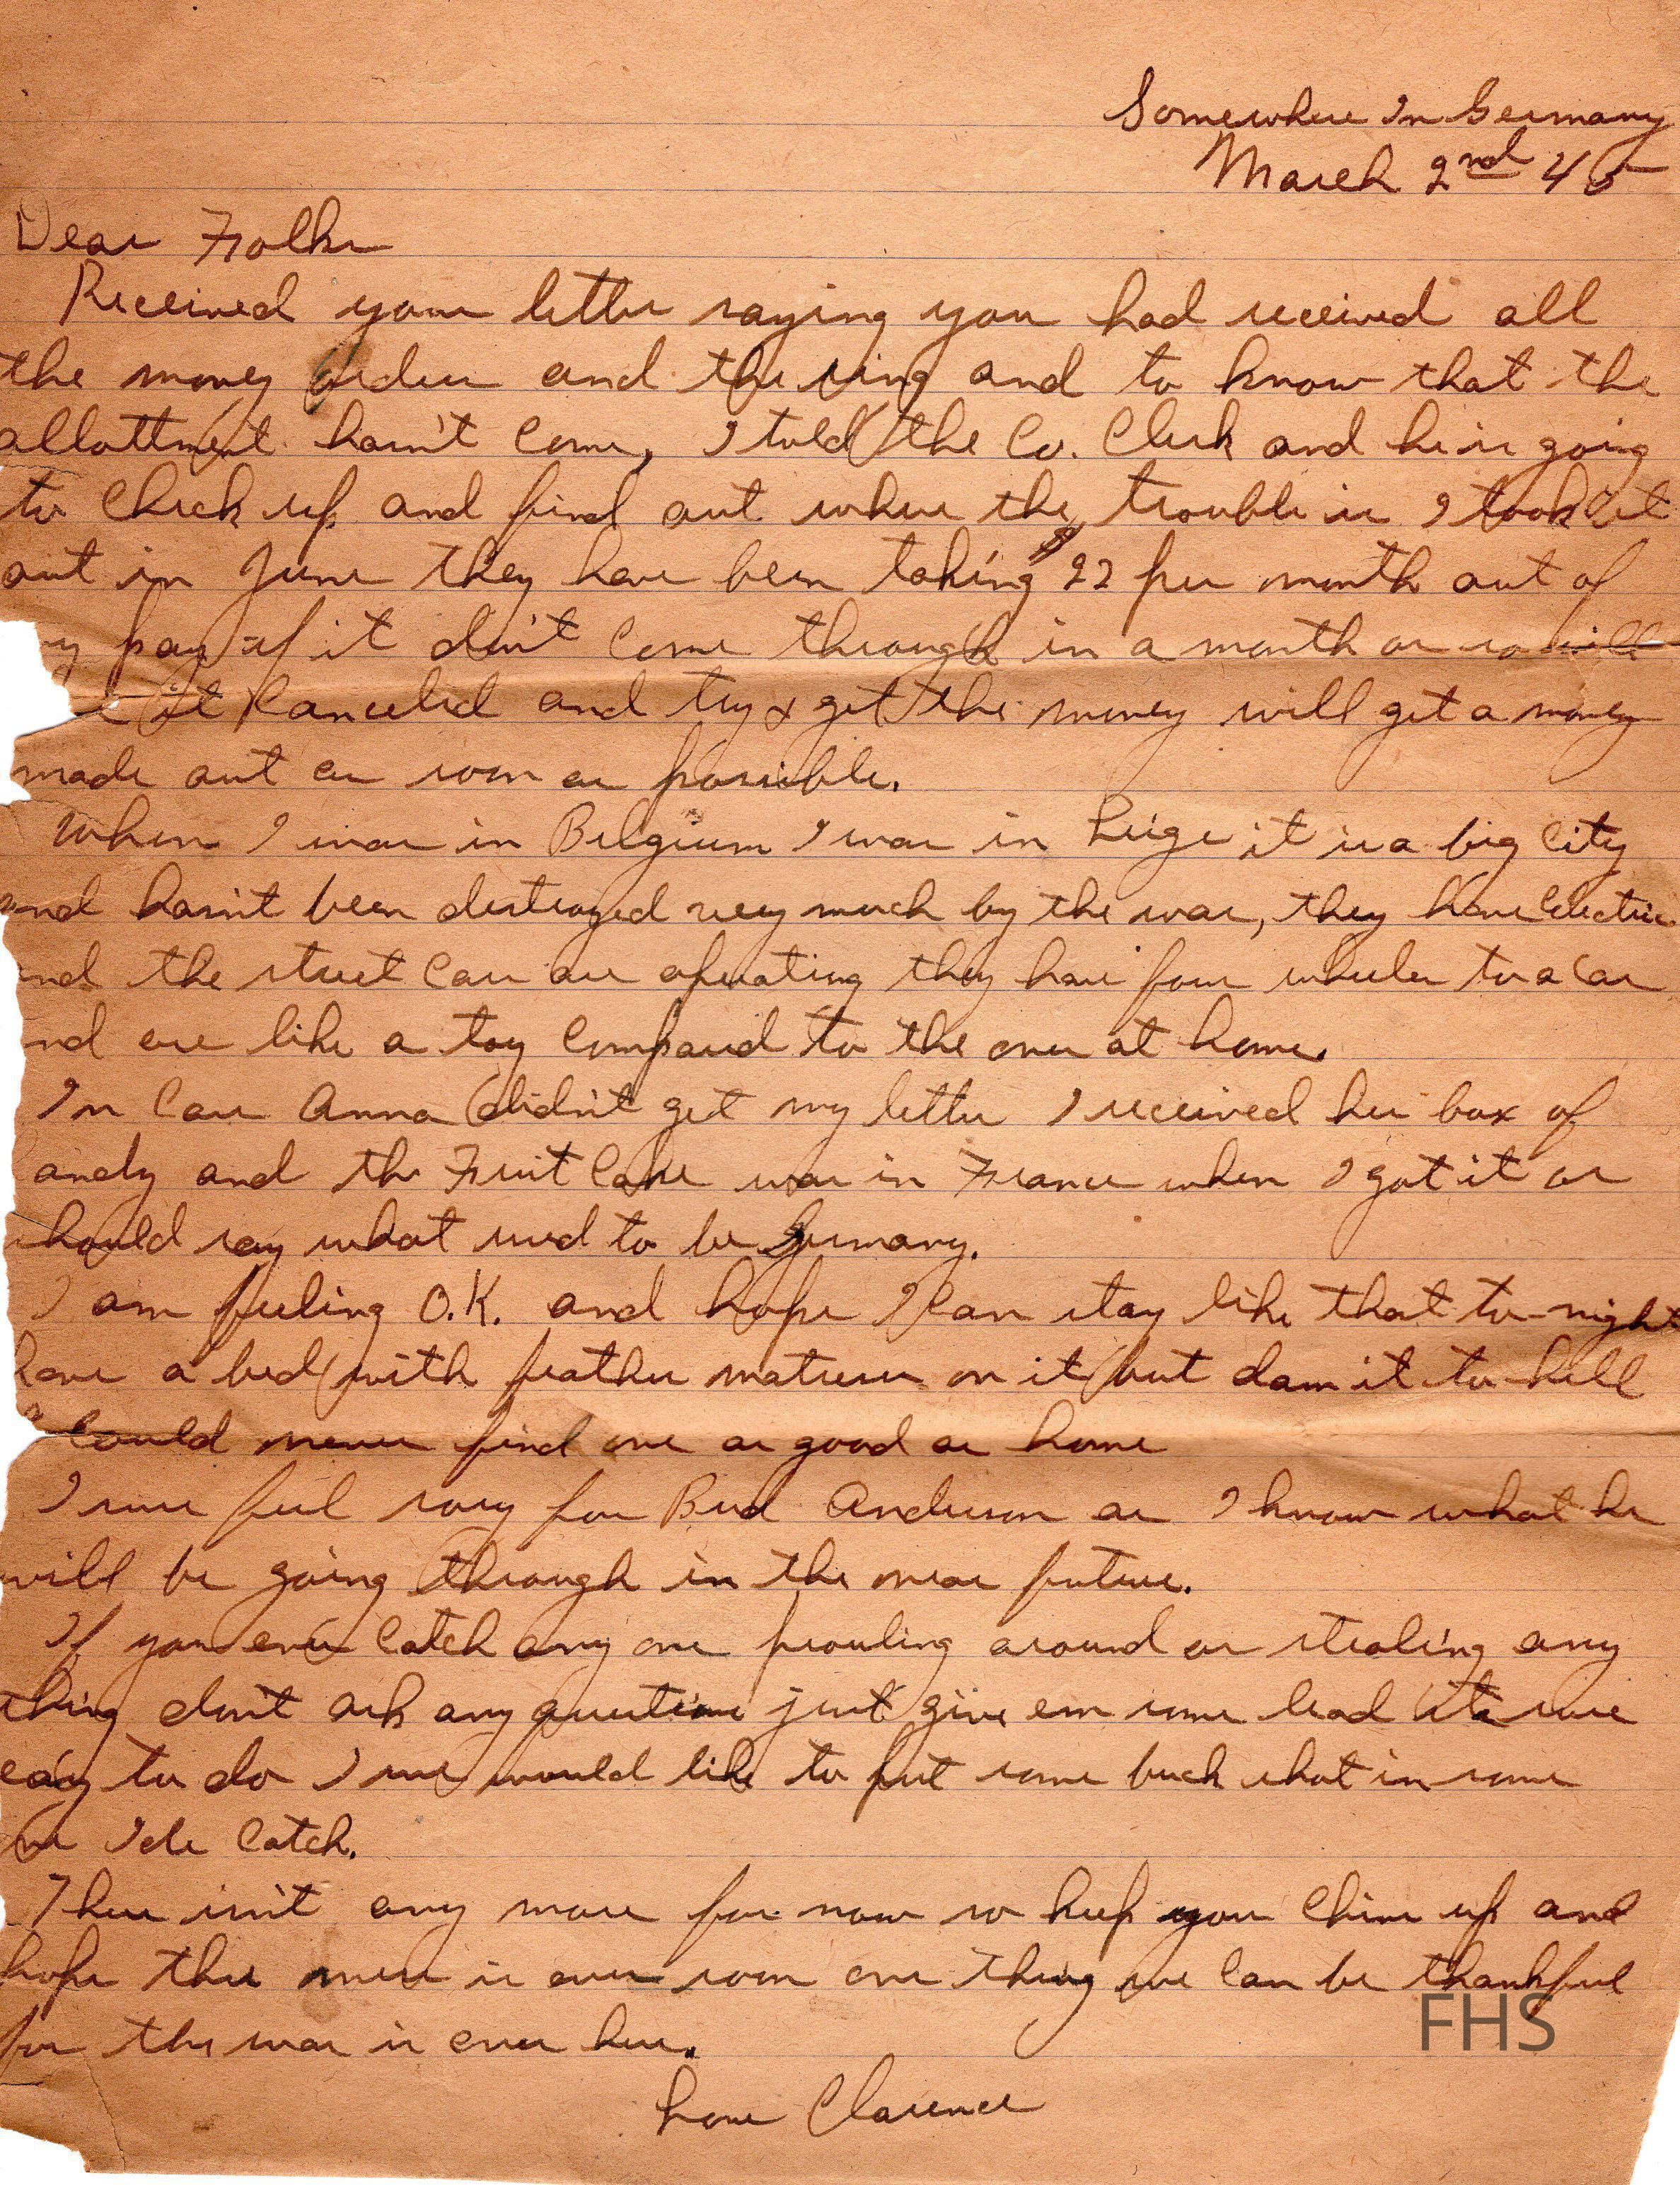 Somewhere In Germany
March 2nd 45
Dear Folks
Received your letter saying you had received all
the money orders and the ring and to know that the
allottment hasn't come, I told the Co. Clerk and he is going
to check up and find out where the trouble is I took it
out in June they have been taking $22 per month out of
my pay if it don't come through in a month or so will
it canceled and try & get the money will get a money
made out as soon as possible.
When I was in Belgium I was in Leige it is a big city
and hasn't been destroyed very much by the war, they have electric
and the street cars are operating they have four wheeles to a car
and are like a toy compared to the ones at home.
In case Anna didn't get my letter I received her box of
candy and the Fruit Cake was in France when I got it or
should say what used to be Germany.
I am feeling O.K. and hope I can stay like that to-night
have a bed with feather matress on it but dam it to hell
could never find one as good as home
I sure feel sory for Bud Anderson as I know what he
will be going through in the near future.
If you ever catch any one prowling around or stealing any
thing don't ask any questions just give em some lead its sure
easy to do I sure would like to put some buck shot in some
one I'de catch.
There isn't any more for now so keep your chins up and
hope this mess is over soon one thing we can be thankful
for the war is over here.
Love Clarence
FHS